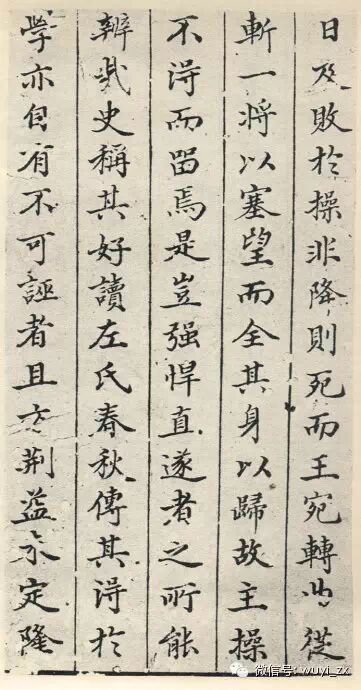 日及敗於操非降則死而王宛轉從
斬一将以塞望而全其身以歸故主操
不得而留焉是豈强悍直遂者之所能
辨哉史稱其好讀左氏春秋傳其得於
學亦自有不可誣者且方荆益未定隆
微信号: wuyi_zx